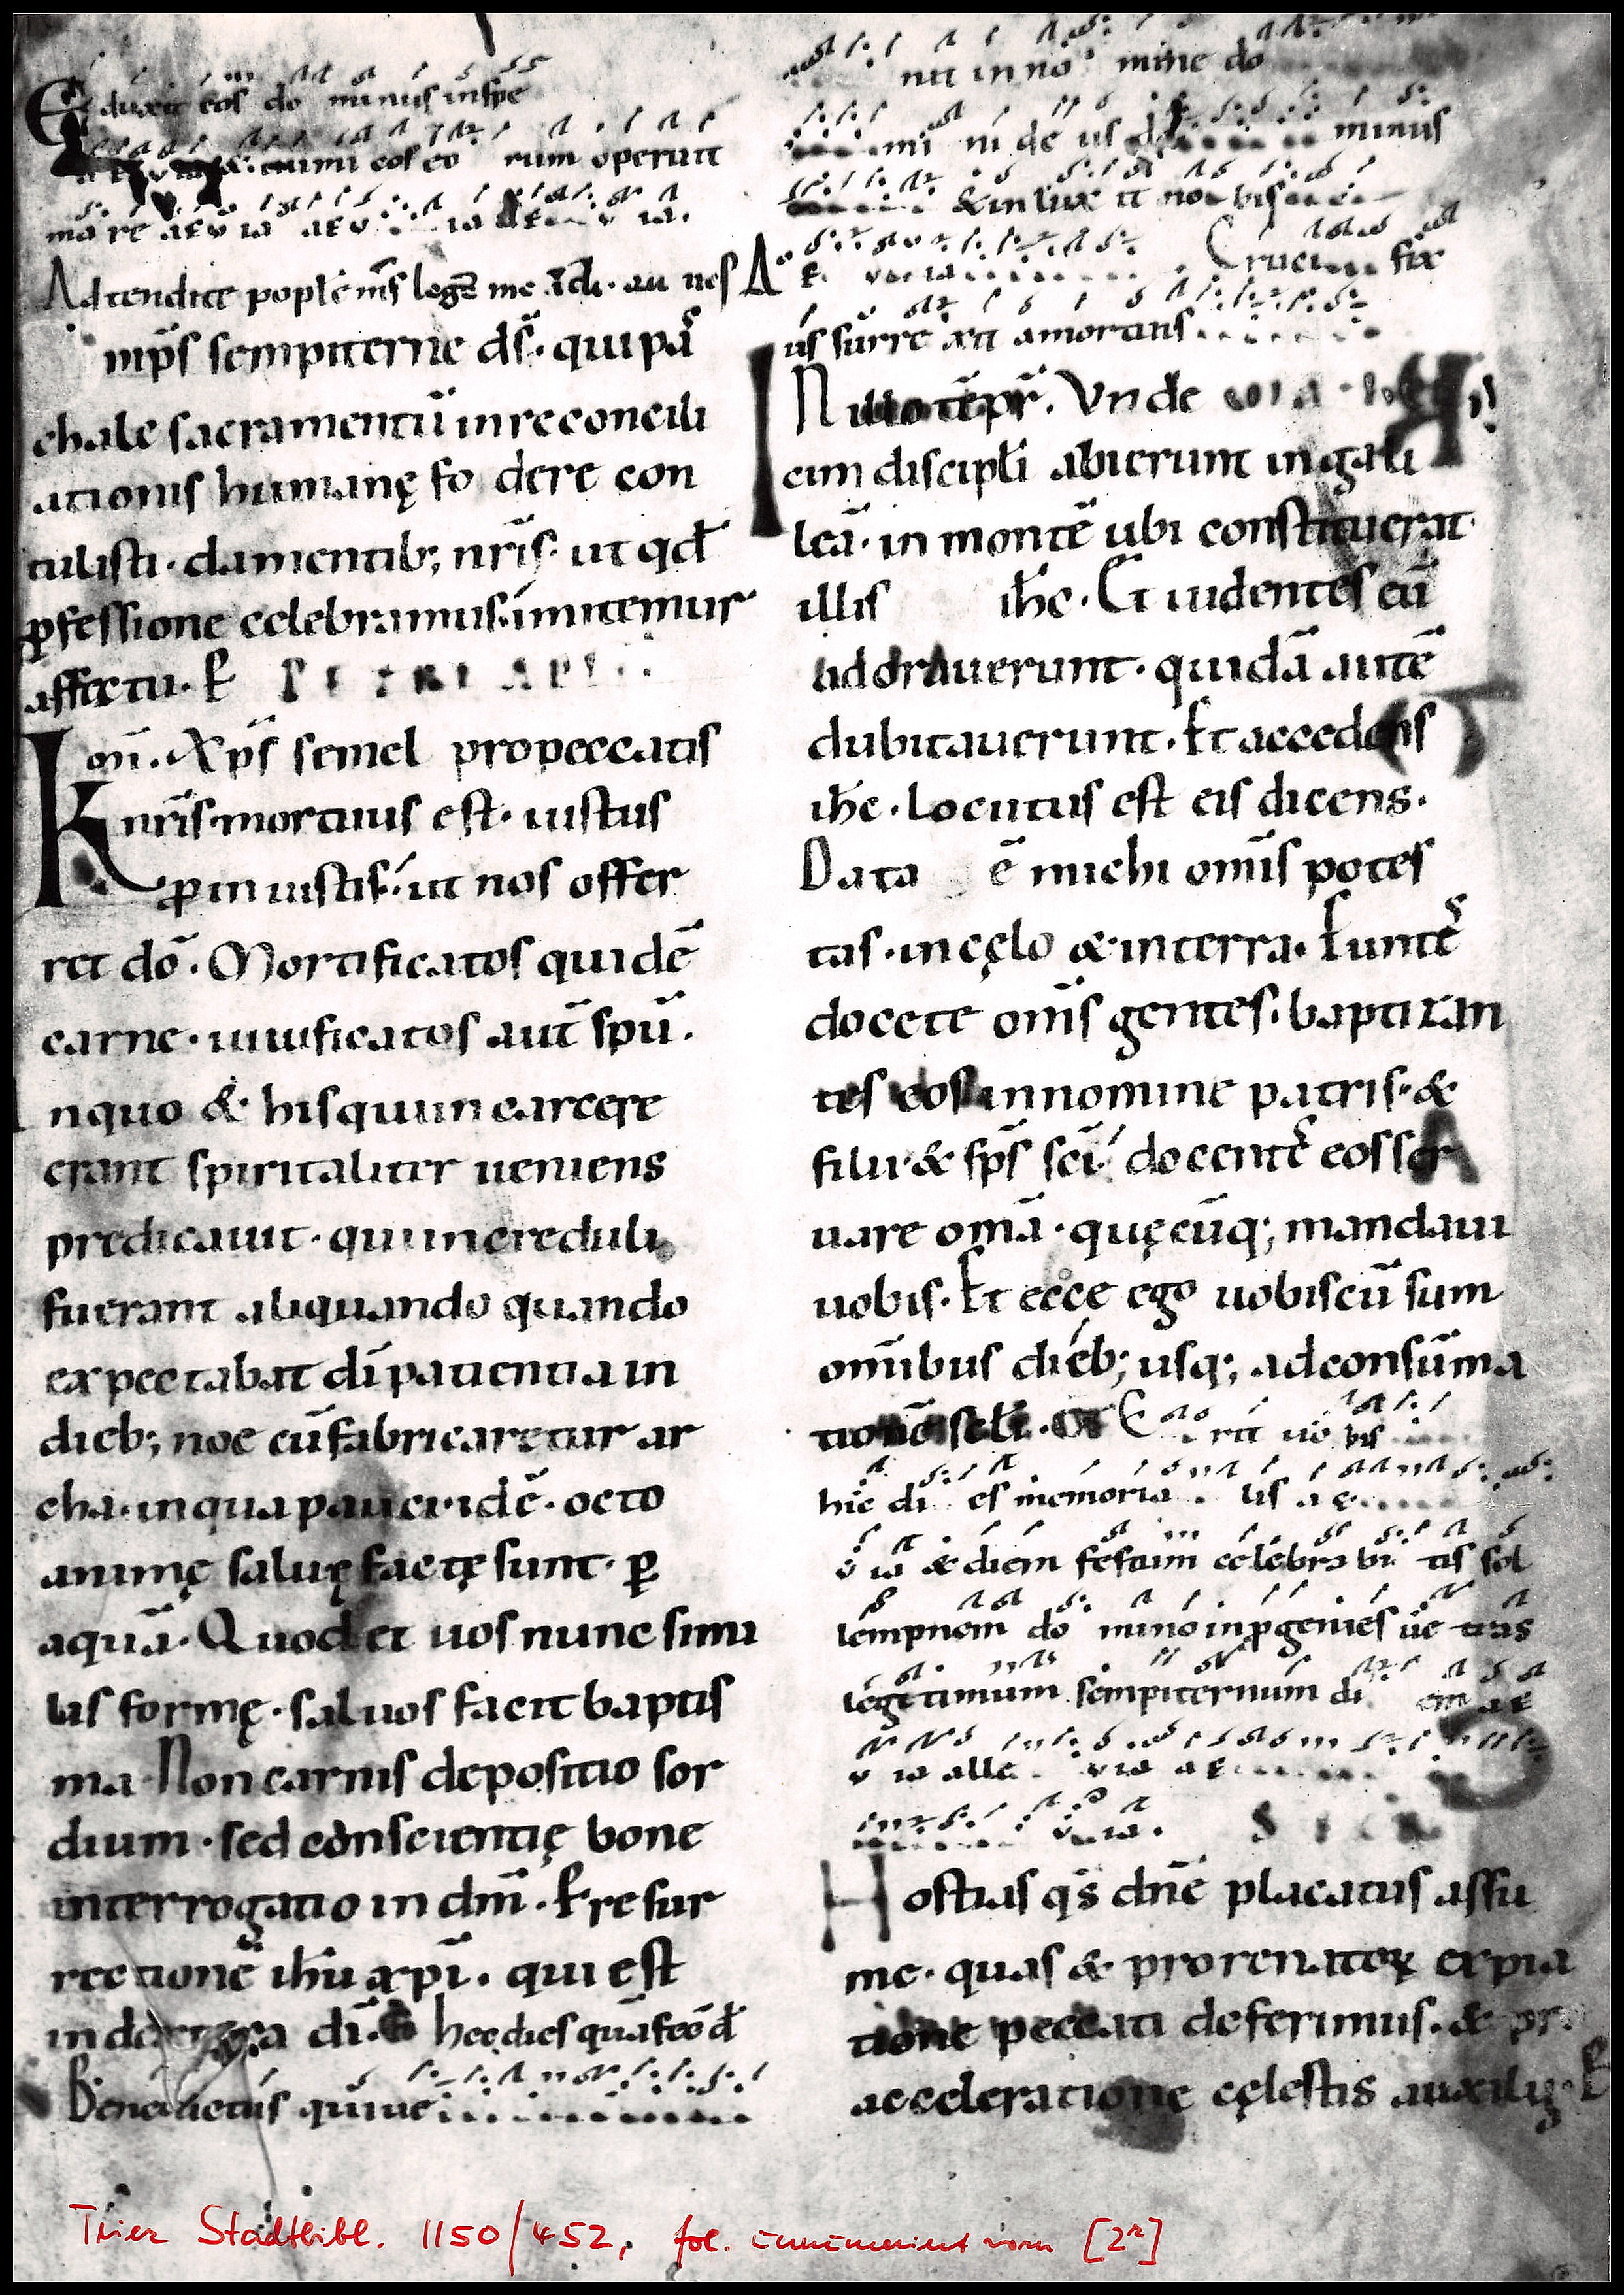 Eduxit eos do minus inspe
inimicos eo rum operuit
mare aeu ia aeu ia ae u ia.
Adtendite pople ms̄ legē me
mp̄s sempiterne ds̄. qui pas
chale sacramentū in reconcili
ationis humanę fo dere con
tulisti. da mentib; nr̄is. ut qd̄
ꝓfessione celebramus. imitemur
affectu. P PETRI APLI.
Kom̄. Xp̄s semel pro peccatis
nr̄is mortuus est. iustus
ꝓ iniustis. ut nos offer
ret dō. Mortificatos quidē
carne. uiuificatos aut̄ sp̄u.
nquo & his qui in carcere
erant spiritaliter ueniens
predicauit. qui increduli
fuerant aliquando quando
expectabat dī patientia in
dieb; noe cū fabricaretur ar
cha. in qua pauci. id ē. octo
animę saluę factę sunt. ꝑ
aquā. Quod et uos nunc simi
lis formę. saluos facit baptis
ma. Non carnis depositio sor
dium. sed conscientię bone
interrogatio in dm̄. P resur
rectionē ihū xpī. qui est
in dextera dī. hec dies quā fec̄ d̄
Benedictus qui ue
nit in no mine do
mi ni de us do minus
& in lux it no bis
Ae uia Cruci fix
us surre xit a mortuis
IN illo tēpr̄. Vndecim
cim discipłi abierunt in gali
leā. in montē ubi constituerat
illis ihc. Et uidentes eū
adorauerunt. quidā autē
dubitauerunt. Et accedens
ihc. Locutus est eis dicens.
Data ē michi om̄is potes
tas. in cęlo & in terra. Euntes
docete om̄s gentes. baptizan
tes eos in nomine patris. &
filii. & sp̄s scī. docentes eos ser
uare omā. quęcūq; mandaui
uobis. Et ecce ego uobiscū sum
om̄ibus dieb; usq; ad consūma
tionē scłi. OF Erit uo bis
hic di es memoria lis ae
u ia & diem festum celebra bi tis sol
lempnem do mino in ꝓgenies ue stras
legitimum sempiternum di em ae
u ia alle uia ae
uia. S
Hostias qs̄ dn̄e placatus assu
me. quas & pro renatoꝝ expia
tione peccati deferimus. & pr.
acceleratione cęlestis auxilii. P
Trier Stadtbibl. 1150/452, fol. [2r]